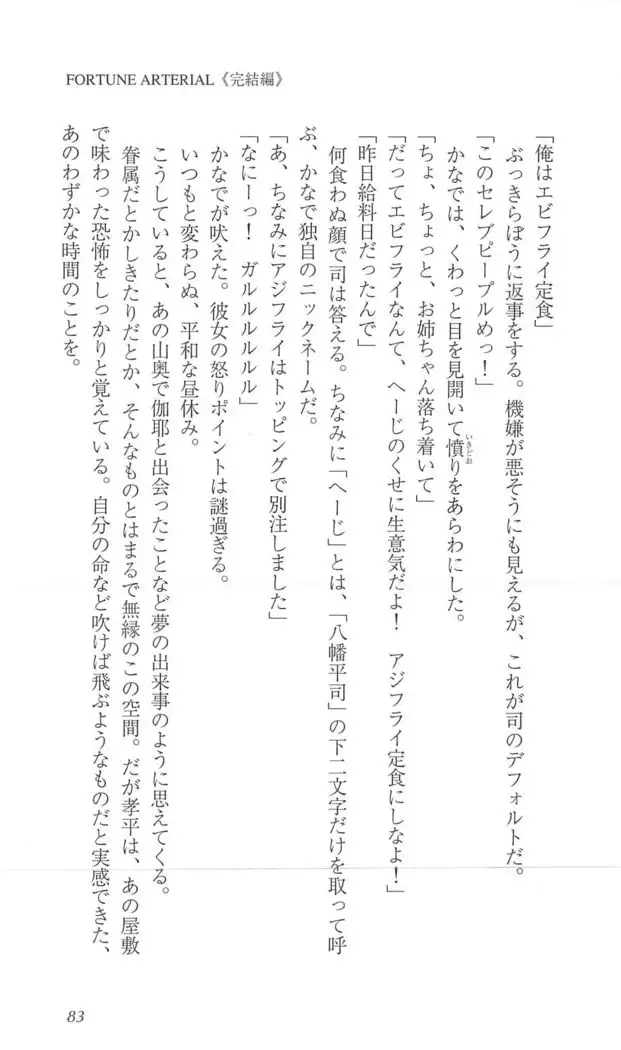 FORTUNE ARTERIAL《完結編》
「俺はエビフライ定食」
ぶっきらぼうに返事をする。機嫌が悪そうにも見えるが、これが司のデフォルトだ。
「このセレブピープルめっ！」
かなでは、くわっと目を見開いて憤りをあらわにした。
いきどお
「ちょ、ちょっと、お姉ちゃん落ち着いて」
「だってエビフライなんて、へーじのくせに生意気だよ！　アジフライ定食にしなよ！」
「昨日給料日だったんで」
何食わぬ顔で司は答える。ちなみに「へーじ」とは、「八幡平司」の下二文字だけを取って呼
ぶ、かなで独自のニックネームだ。
「あ、ちなみにアジフライはトッピングで別注しました」
「なにーっ！　ガルルルルルル」
かなでが吠えた。彼女の怒りポイントは謎過ぎる。
いつもと変わらぬ、平和な昼休み。
こうしていると、あの山奥で伽耶と出会ったことなど夢の出来事のように思えてくる。
眷属だとかしきたりだとか、そんなものとはまるで無縁のこの空間。だが孝平は、あの屋敷
で味わった恐怖をしっかりと覚えている。自分の命など吹けば飛ぶようなものだと実感できた、
あのわずかな時間のことを。
83